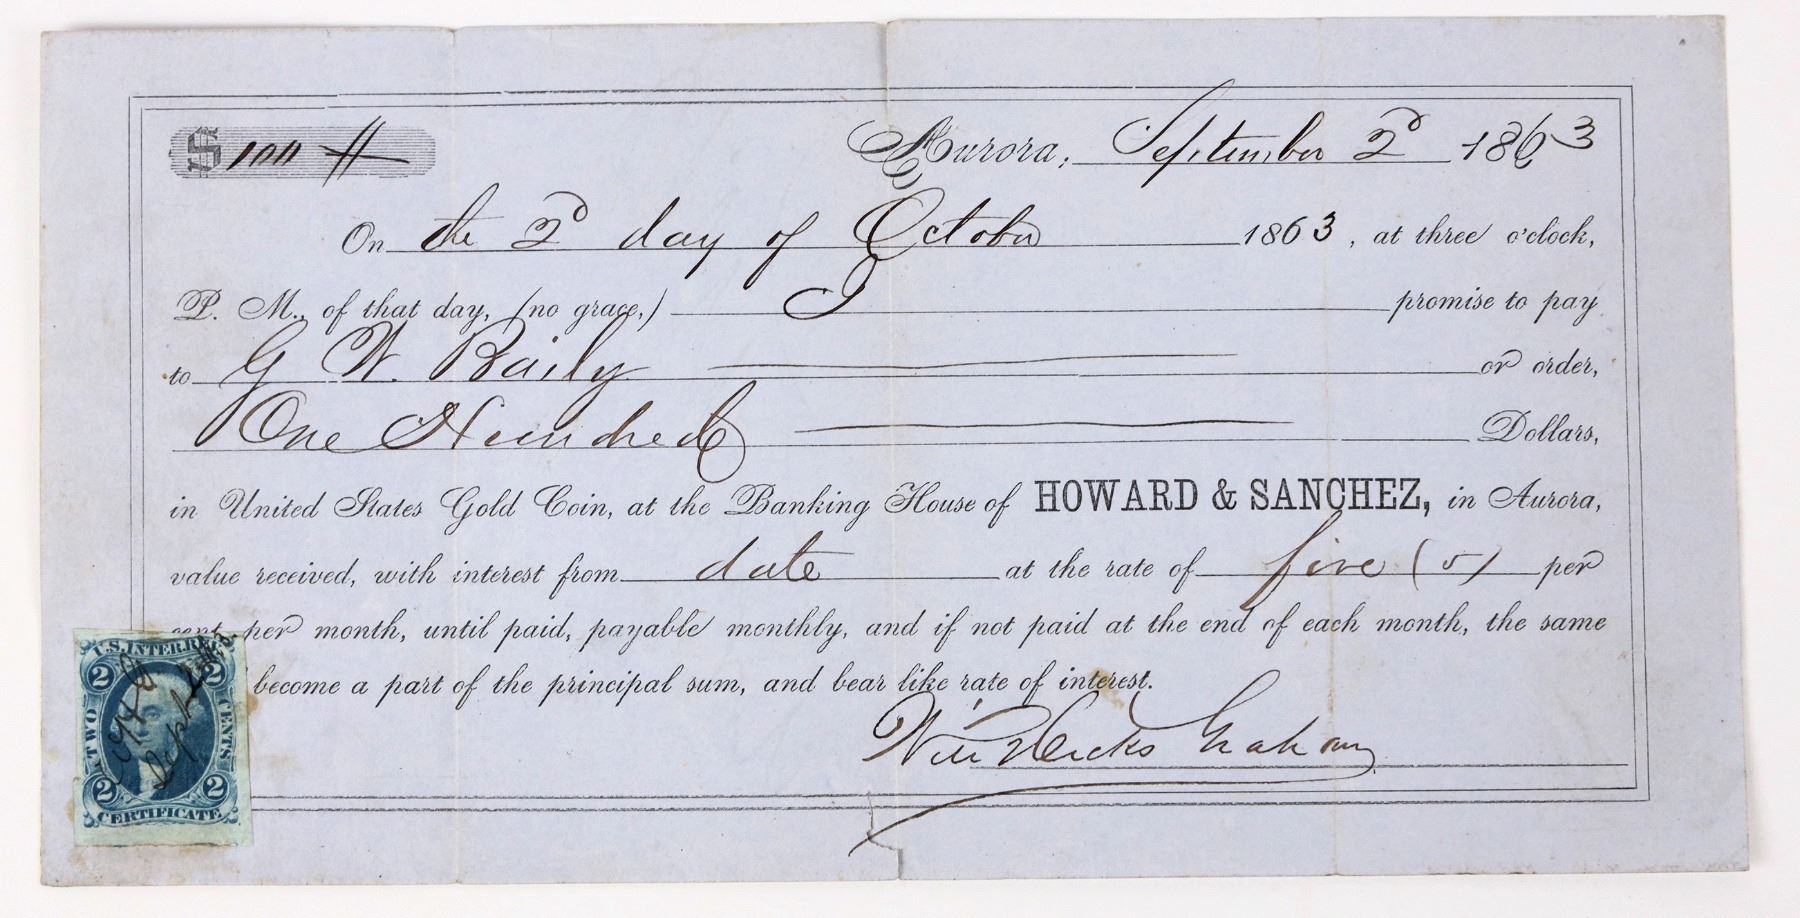 $ 100
Aurora, September 2d 1863
On the 2d day of October 1863, at three o'clock,
P. M., of that day, (no grace,) I promise to pay
to G W. Baily or order,
One Hundred Dollars,
in United States Gold Coin, at the Banking House of HOWARD & SANCHEZ, in Aurora,
value received, with interest from date at the rate of five (5) per
cent. per month, until paid, payable monthly, and if not paid at the end of each month, the same
become a part of the principal sum, and bear like rate of interest.
Will Hicks Graham
U.S. INTER. REV.
2 2
TWO CENTS
Sept
2 2
CERTIFICATE